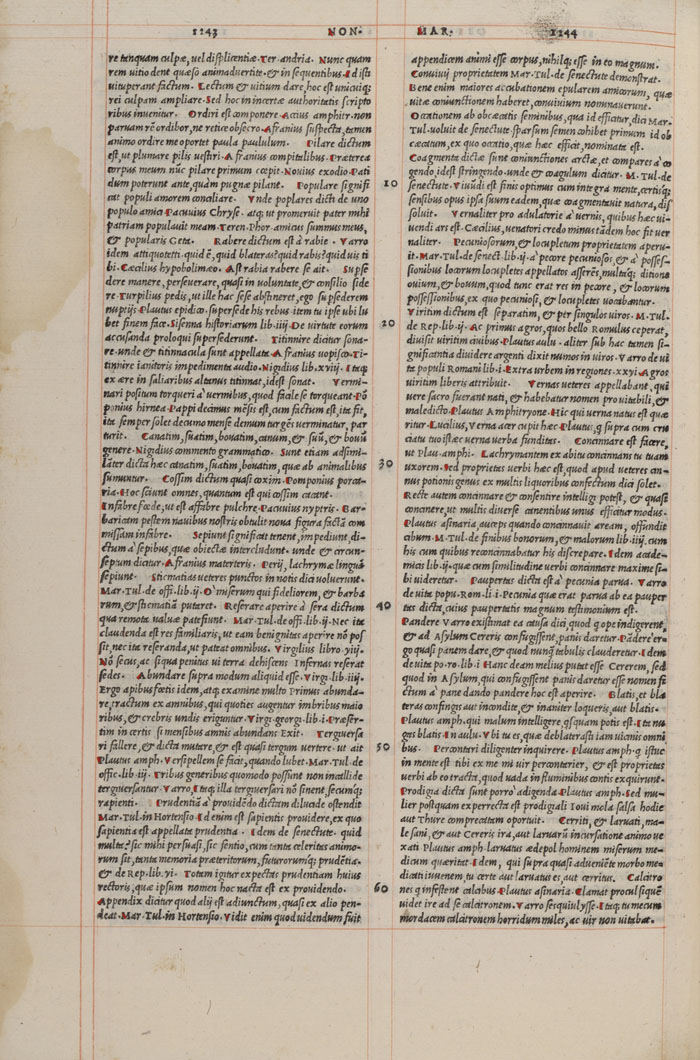 1243 NON. MAR. 1244
re tanquam culpæ, uel displicentiæ. Ter. andria. Nunc quam
rem uitio dent quæso animaduertite. & in sequentibus. Id isti
uituperant factum. Lectum & uitium dare, hoc est unicuiq;
rei culpam ampliare. Sed hoc in incertæ authoritatis scripto
ribus inuenitur. Ordiri est componere. Accius amphitr. non
paruam rem ordibor, ne retice obsecro. Afranius suspecta, tamen
animo ordire me oportet paula paululum. Pilare dictum
est, ut plumare pilis uestiri. Afranius compitalibus. Præterea
corpus meum nũc pilare primum cœpit. Nouius exodio. Pati
dum poterunt ante, quàm pugnæ pilant. Populare signifi
cat populi amorem conciliare. Vnde poplares dicti de uno
populo amici. Pacuuius Chryse. atq; ut promeruit pater mihi
patriam populauit meam. Teren. Phor. amicus summus meus,
& popularis Geta. Rabere dictum est à rabie. Varro
idem attiquotetti. quid ẽ, quid blateras? quid rabis? quid uis ti
bi. Cæcilius hypobolimæo. Ast rabia rabere se ait. Supse
dere manere, perseuerare, quasi in uoluntate, & consilio side
re. Turpilius pedis, ut ille hac sese abstineret, ego supsederem
nuptijs. Plautus epidico. supersede his rebus. item tu ipse ubi lu
bet finem face. Sisenna historiarum lib. iiij. De uirtute eorum
accusanda proloqui supersederunt. Titinnire dicitur sona-
re. unde & titinnacula sunt appellata. Afranius uopisco. Ti-
tinnire ianitoris impedimenta audio. Nigidius lib. xviij. Itaq;
ex ære in saliaribus altenus titinnat, id est sonat. Vermi-
nari positum torqueri à uermibus, quod facile se torqueant. Põ
ponius hirnea. Pappi decimus mẽsis est, cum factum est, ita fit,
ita semper solet decumo mense demum turgẽs uerminatur, par
turit. Canatim, suatim, bouatim, canum, & suũ, & bouũ
genere. Nigidius commento grammatico. Sunt etiam adsimi-
later dicta hæc canatim, suatim, bouatim, quæ ab animalibus
sumuntur. Cossim dictum quasi coxim. Pomponius porcat-
ria. Hoc sciunt omnes, quantum est qui cossim cacant.
Infabre fœde, ut est affabre pulchre. Pacuuius nyptris. Bar-
baricam pestem nauibus nostris obtulit noua figura factã com
missam infabre. Sepiunt significat tenent, impediunt, di-
ctum à sepibus, quæ obiectæ intercludunt. unde & circun-
septum dicitur. Afranius materteris. Perij, lachrymæ linguã
sepiunt. Stigmatias ueteres punctos in notis dici uoluerunt.
Mar. Tul. de offi. lib. ij. O miserum qui fideliorem, & barba
rum, & stigmatiã putaret. Reserare aperire à sera dictum
qua remota ualuæ patefiunt. Mar. Tul. de offi. lib. ij. Nec ita
claudenda est res familiaris, ut eam benignitas aperire nõ pos
sit, nec ita reseranda, ut pateat omnibus. Virgilius libro. viij.
Nõ secus, ac si qua penitus ui terra dehiscens Infernas referat
sedes. Abundare supra modum aliquid esse. Virgi. lib. iiij.
Ergo apibus fœtis idem, atq; examine multo Primus abunda-
re, tractum ex amnibus, qui quoties augentur imbribus maio
ribus, & crebris undis eriguntur. Virgi. georgi. lib. i. Præser-
tim in certis si mensibus amnis abundans Exit. Tergiuersa
ri fallere, & dicta mutare, & est quasi tergum uertere. ut ait
Plautus amph. Versipellem se facit, quando lubet. Mar. Tul. de
offic. lib. iij. Tribus generibus quomodo possunt non incallide
tergiuersantur. Varro. Itaq; illa tergiuersari nõ sinent, secumq;
rapient. Prudentiã à prouidẽdo dictam dilucide ostendit
Mar. Tul. in Hortensio. Id enim est sapientis prouidere, ex quo
sapientia est appellata prudentia. Idem de senectute. quid
multa? sic mihi persuasi, sic sentio, cum tanta celeritas animo-
rum sit, tanta memoria præteritorum, futurorumq; prudẽtia.
& de Rep. lib. vi. Totam igitur expectas prudentiam huius
rectoris, quæ ipsum nomen hoc nacta est ex prouidendo.
Appendix dicitur quod alij est adiunctum, quasi ex alio pen-
deat. Mar. Tul. in Hortensio. Vidit enim quod uidendum fuit
10
20
30
40
50
60
appendicem animi esse corpus, nihilq; esse in eo magnum.
Conuiuij proprietatem Mar. Tul. de senectute demonstrat.
Bene enim maiores accubationem epularem amicorum, quæ
uitæ coniunctionem haberet, conuiuium nominauerunt.
Occationem ab obcæcatis seminibus, qua id efficitur, dici Mar.
Tul. uoluit de senectute. sparsum semen cohibet primum id ob
cæcatum, ex quo occatio, quæ hæc efficit, nominata est.
Coagmenta dictæ sunt coniunctiones arctæ, et compares à co
gendo, id est stringendo. unde & coagulum dicitur. M. Tul. de
senectute. Viuẽdi est finis optimus cum integra mente, certisq;
sensibus opus ipsa suum eadem, quæ coagmentauit natura, dis
soluit. Vernaliter pro adulatorie à uernis, quibus hæc ui-
uendi ars est. Cæcilius, uenatori credo minus tãdem hoc fit uer
naliter. Pecuniosorum, & locupletum proprietatem aperu-
it. Mar. Tul. de senect. lib. ij. à pecore pecuniosos, & à posses-
sionibus locorum locupletes appellatos asserẽs, multaq; ditione
ouium, & bouum, quod tunc erat res in pecore, & locorum
possessionibus, ex quo pecuniosi, & locupletes uocabantur.
Viritim dictum est separatim, & per singulos uiros. M. Tul.
de Rep. lib. ij. Ac primus agros, quos bello Romulus ceperat,
diuisit uiritim ciuibus. Plautus aulu. aliter sub hac tamen si-
gnificantia diuidere argenti dixit numos in uiros. Varro de ui
ta populi Romani lib. i. Extra urbem in regiones. xxvj. Agros
uiritim liberis attribuit. Vernas ueteres appellabant, qui
uere sacro fuerant nati, & habebatur nomen pro uitabili, &
maledicto. Plautus Amphitryone. Hic qui uerna natus est quæ
ritur. Lucilius, uerna acer cupit hæc Plautus, q supra cum cru
ciatu tuo istæc uerna uerba funditas. Concinnare est facere,
ut Plau. amphi. Lachrymantem ex abitu concinnans tu tuam
uxorem. Sed proprietas uerbi hæc est, quod apud ueteres cin-
nus potionis genus ex multis liquoribus confectum dici solet.
Recte autem concinnare & consentire intelligi potest, & quasi
concinere, ut multis diuerse canentibus unus efficiatur modus.
Plautus asinaria, auceps quando concinnauit aream, offundit
cibum. M. Tul. de finibus bonorum, & malorum lib. iiij. cum
his cum quibus reconcinnabatur his discrepare. Idem acade-
micis lib. ij. quæ cum similitudine uerbi concinnare maxime si-
bi uideretur. Paupertas dicta est à pecunia parua. Varro
de uita popu. Rom. li. i. Pecunia quæ erat parua ab ea pauper
tas dicta, cuius paupertatis magnum testimonium est.
Pandere Varro existimat ea causa dici, quod q ope indigerent,
& ad Asylum Cereris confugissent, panis daretur. Pãdere ẽr-
go quasi panem dare, & quod nunq̃ tabulis clauderetur. Idem
de uita po. ro. lib. i. Hanc deam melius putat esse Cererem, sed
quod in Asylum, qui confugissent panis daretur esse nomen fi
ctum à pane dando pandere hoc est aperire. Blatis, et bla
teras confingis aut incondite, & inaniter loqueris, aut blatis.
Plautus amph. qui malum intellegere q̃squam potis est. Ita nu
gas blatis. In aulu. Vbi tu es, quæ deblaterasti iam uicinis omni
bus. Percontari diligenter inquirere. Plautus amph. q̃ istuc
in mente est tibi ex me mi uir percontarier, & est proprietas
uerbi ab eo tracta, quod uada in fluminibus contis exquirunt.
Prodigia dicta sunt porro adigenda. Plautus amph. Sed mu-
lier postquam experrecta est prodigiali Ioui mola salsa hodie
aut Thure comprecatam oportuit. Cerriti, & laruati, ma-
le sani, & aut Cereris ira, aut laruarũ incursatione animo ue
xati. Plautus amph. laruatus ædepol hominem miserum me-
dicum quæritat. Idem, qui supra quasi adueniẽte morbo me-
dicati iuuenem tu certe aut laruatus es, aut cerritus. Calcitro
nes q infestent calcibus. Plautus asinaria. Clamat procul siquẽ
uidet ire ad se calcitronem. Varro sesquiulysse. Itaq; tu mecum
mordacem calcitronem horridum miles, ac uir non uitabat.